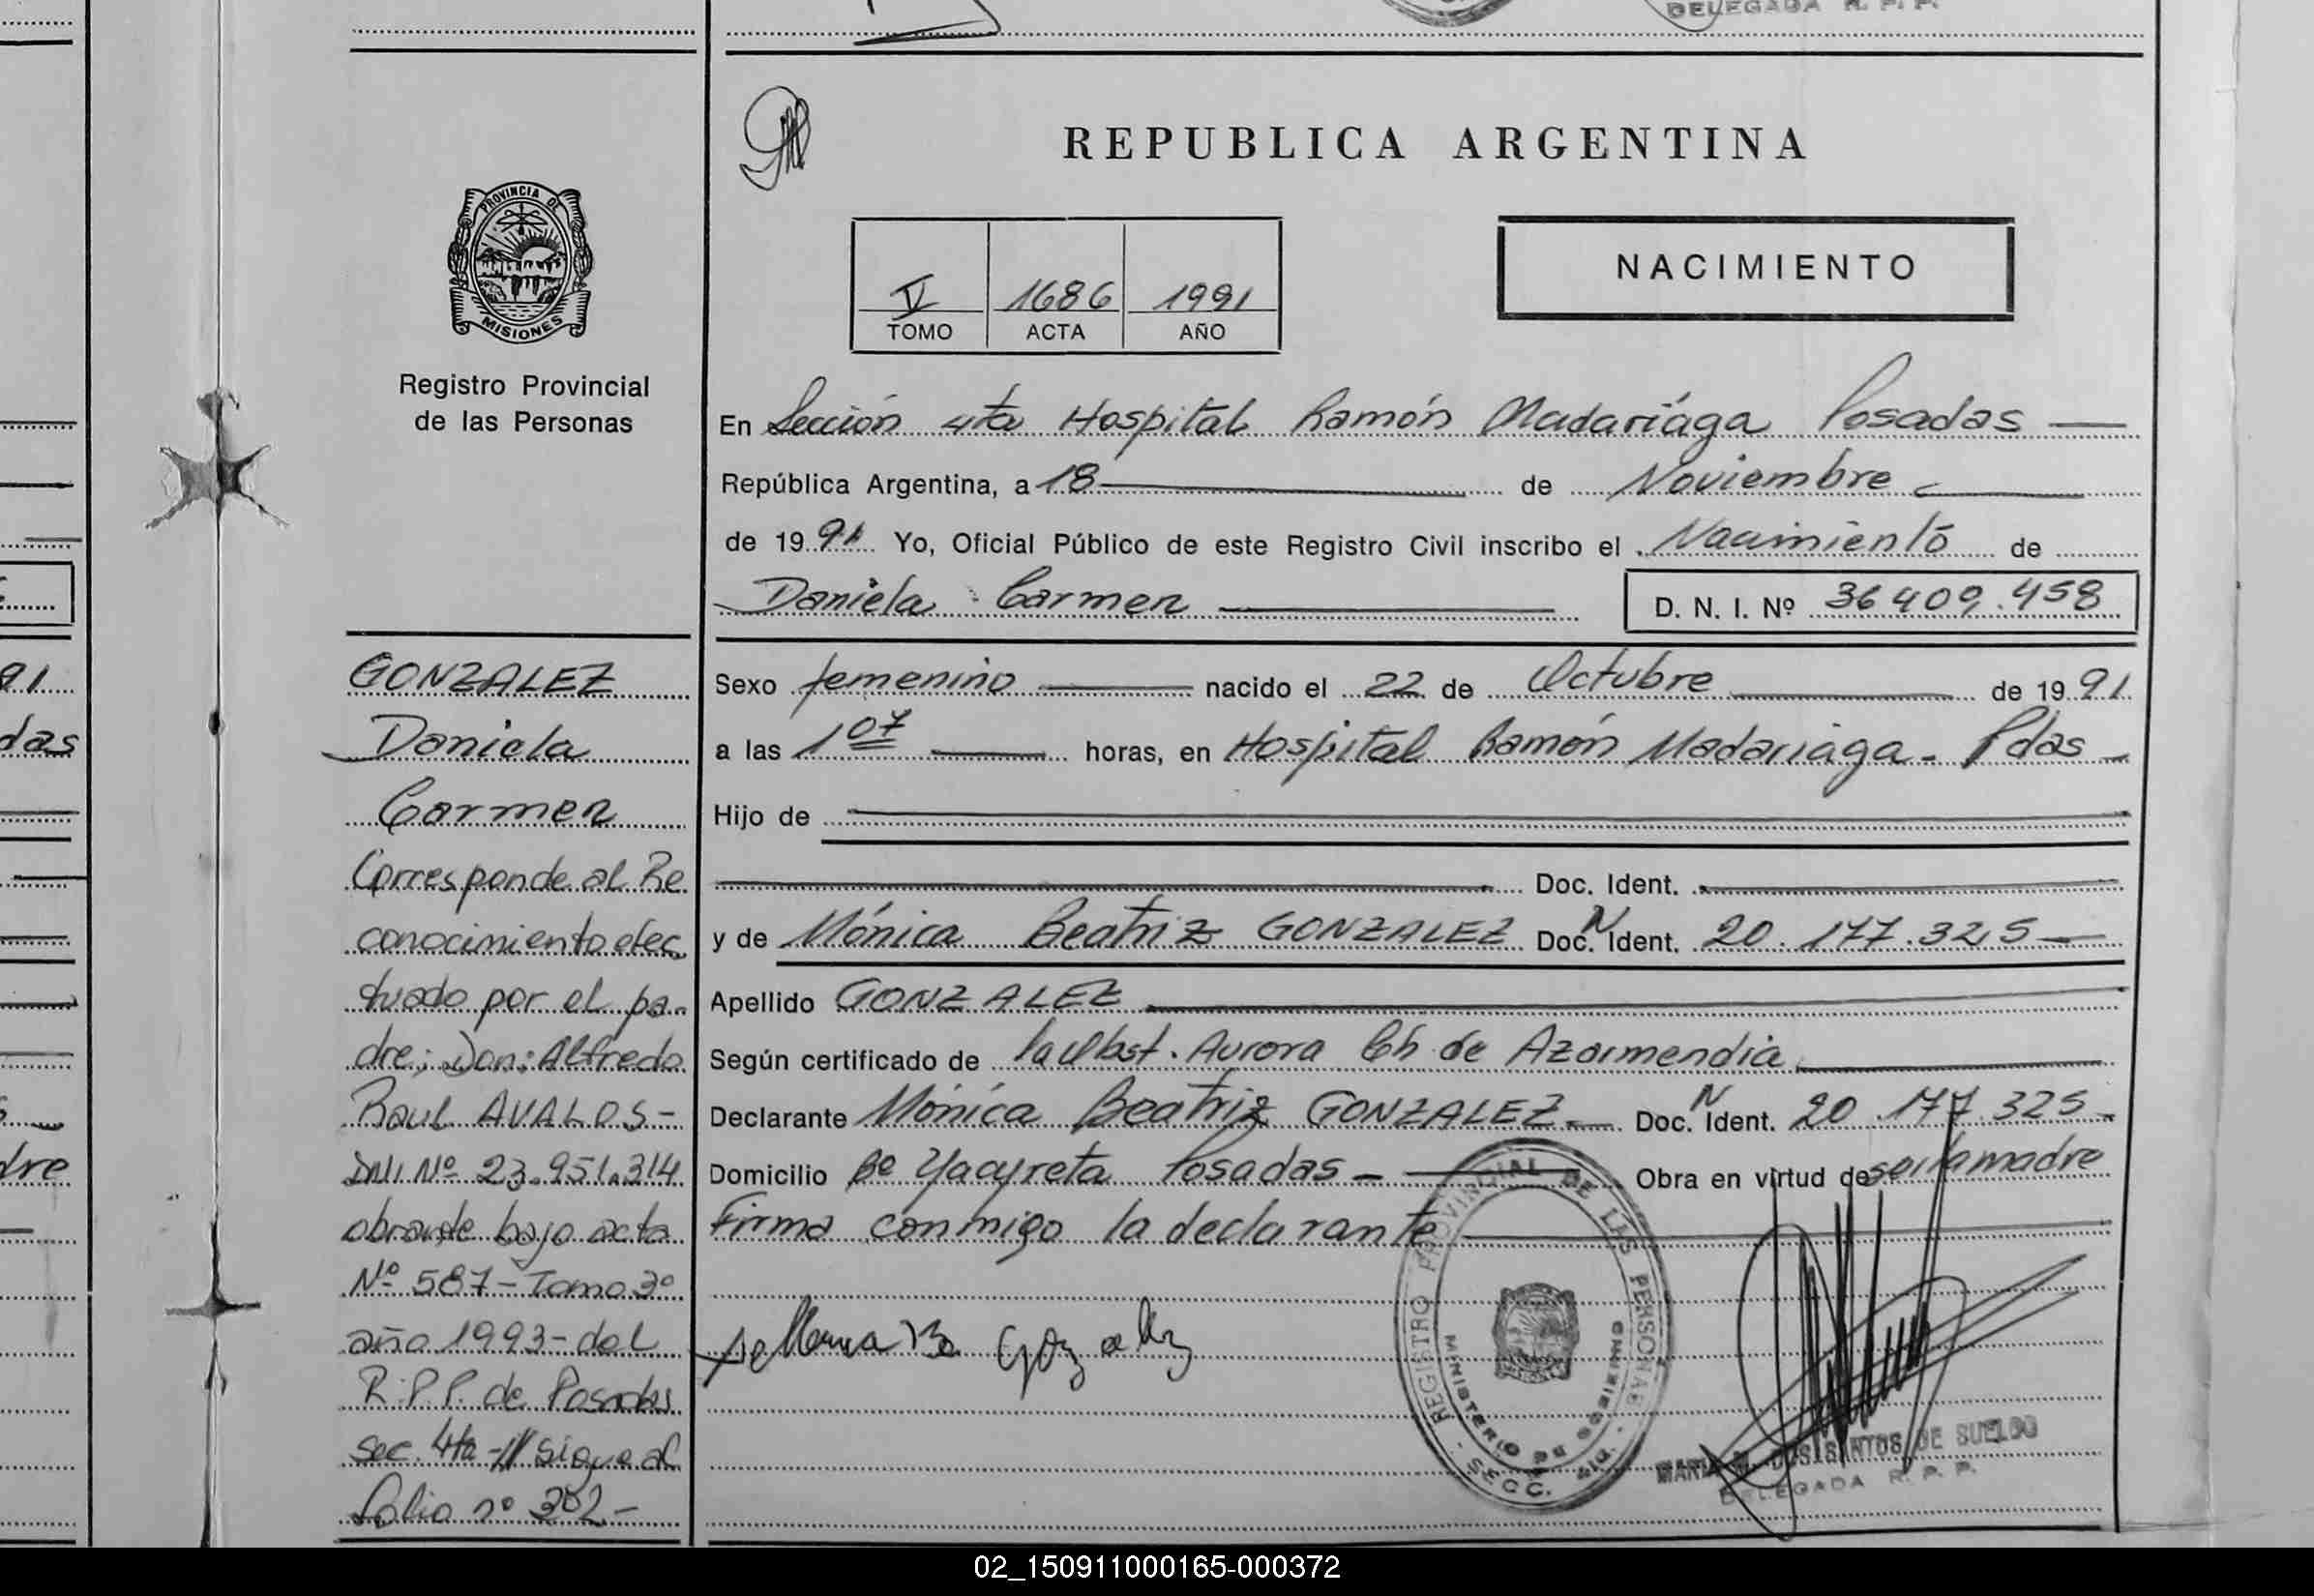 DELEGADA R. P. P.
REPUBLICA ARGENTINA
PROVINCIA DE
MISIONES
Registro Provincial
de las Personas
V 1686 1991
TOMO ACTA AÑO
NACIMIENTO
En Sección 4ta Hospital Ramón Madariaga Posadas
República Argentina, a 18 de Noviembre
de 1991 Yo, Oficial Público de este Registro Civil inscribo el Nacimiento de
Daniela Carmen D. N. I. Nº 36409.458
Sexo femenino nacido el 22 de Octubre de 1991
a las 1 07 horas, en Hospital Ramón Madariaga - Pdas
Hijo de
Doc. Ident.
y de Mónica Beatriz GONZALEZ Doc. N Ident. 20.177.325
Apellido GONZALEZ
Según certificado de la Obst. Aurora Ch de Azarmendia
Declarante Mónica Beatriz GONZALEZ Doc. N Ident. 20.177.325
Domicilio Bº Yacyreta Posadas - Obra en virtud de ser la madre
Firma conmigo la declarante
REGISTRO PROVINCIAL DE LAS PERSONAS
MINISTERIO DE GOBIERNO
SECC.
DOS SANTOS DE SUELDO
DELEGADA R. P. P.
GONZALEZ
Daniela
Carmen
Corresponde al Re
conocimiento efec
tuado por el pa-
dre; Don: Alfredo
Raul AVALOS-
DNI Nº 23.951.314
obrante bajo acta
Nº 587 - Tomo 3º
año 1993 - del
R.P.P. de Posadas
sec. 4ta -// sigue al
folio nº 302-
91
das
dre
02_150911000165-000372